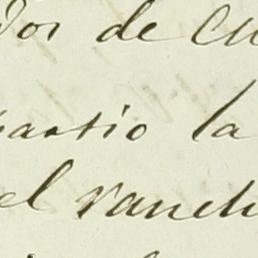 dor de Cu
partio la
el ranch